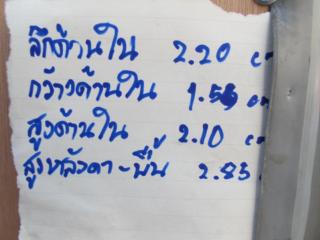 ลึกด้านใน 2.20 cm
กว้างด้านใน 1.5
สูงด้านใน 2.10 c
สูงหลังคา-พื้น 2.83